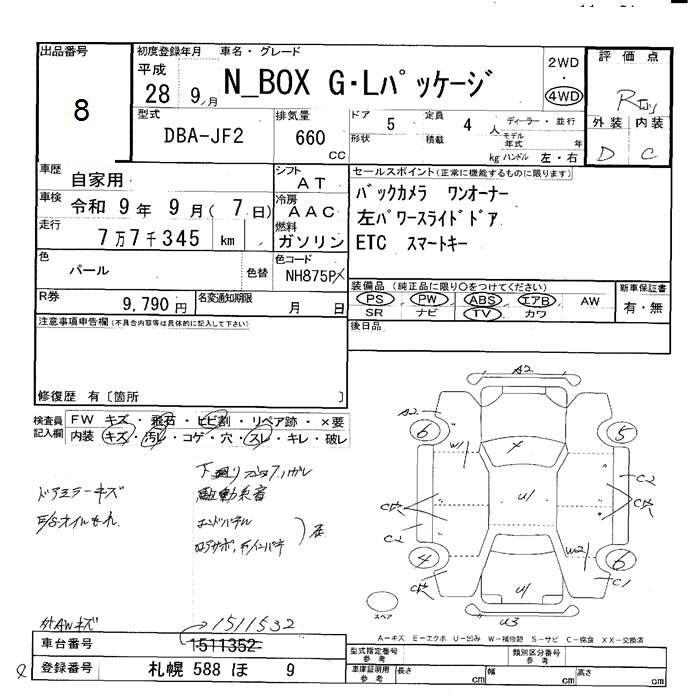 出品番号 初度登録年月 車名・グレード 2WD ・ 4WD 評価点
8 平成 28 9月 N_BOX G・Lパッケージ R
型式 DBA-JF2 排気量 660 CC ドア 5 定員 4人 ディーラー・並行
形状 積載 kg モデル年式 年 ハンドル 左・右
外装 内装
D C
車歴 自家用 シフト AT セールスポイント(正常に機能するものに限ります)
車検 令和 9年 9月( 7日) 冷房 AAC バックカメラ ワンオーナー
左パワースライドドア
走行 7万7千345 km 燃料 ガソリン ETC スマートキー
色 パール 色替 色コード NH875P
装備品 (純正品に限り○をつけてください) 新車保証書
PS PW ABS エアB AW 有・無
SR ナビ TV カワ
R券 9,790円 名変通知期限 月 日
注意事項申告欄(不具合内容等は具体的に記入して下さい) 後日品
修復歴 有〔箇所 〕
検査員記入欄 FW キズ・飛石・ヒビ割・リペア跡・×要
内装 キズ・汚レ・コゲ・穴・スレ・キレ・破レ
A2
A2 6 5
W1
U1 C2
C2
4 W2 6
U1 C1
U3
ドアミラーキズ
スペア
外AWキズ
1511532
A-キズ E-エクボ U-凹み W-補修跡 S-サビ C-腐食 XX-交換済
車台番号 1511352
登録番号 札幌 588 ほ 9
型式指定番号 参考 類別区分番号 参考
車庫証明用 参考 長さ cm 幅 cm 高さ cm